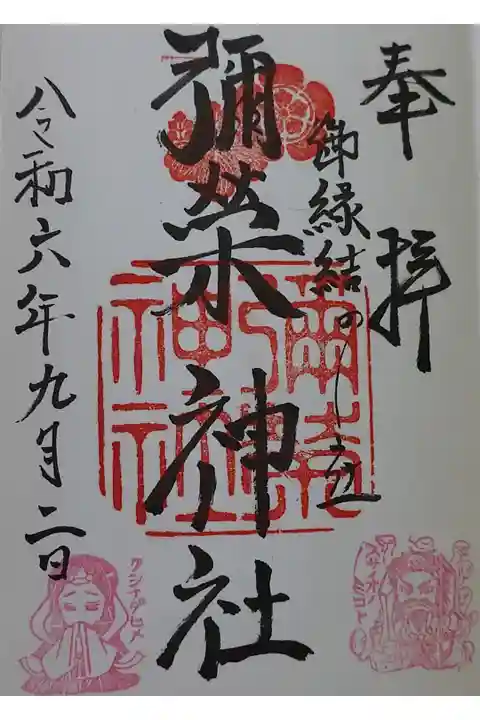 奉拝
御縁結の
彌榮神社
令和六年九月二日
クシナダヒメ
スサノオノミコト